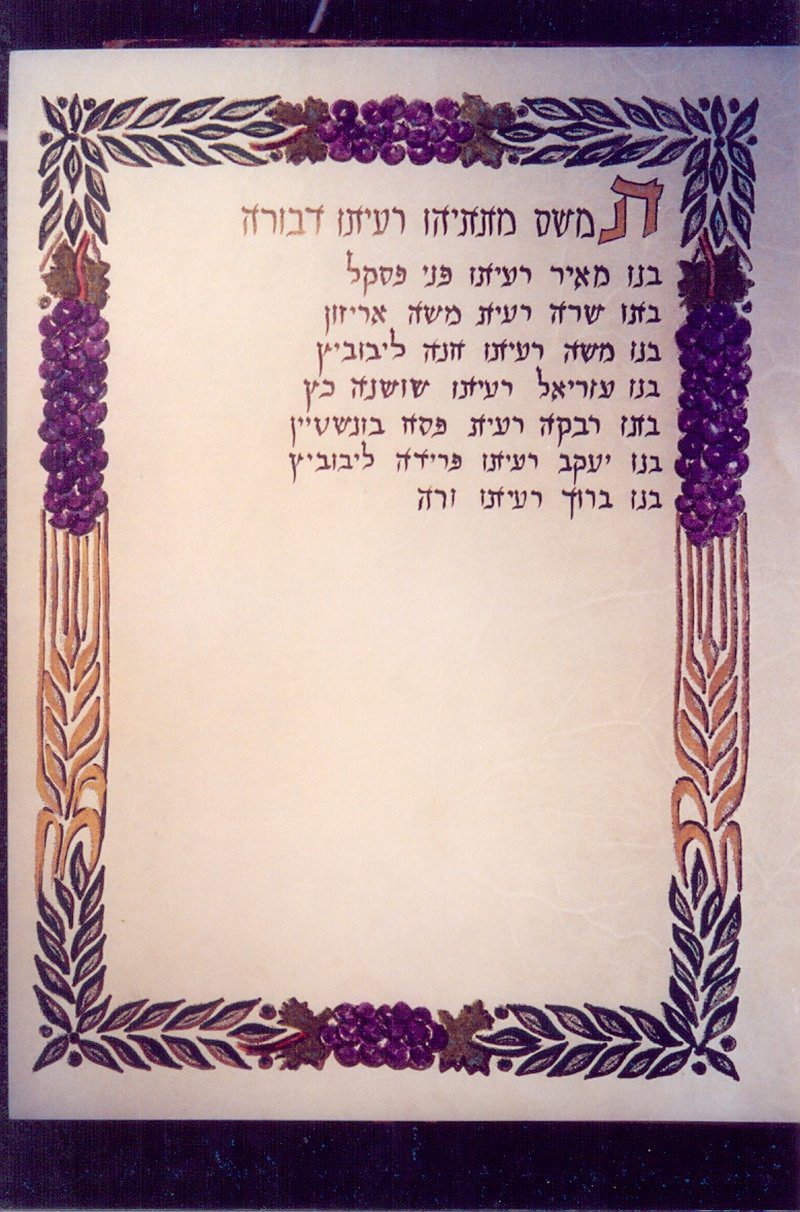 תמשס מתתיהו רעיתו דבורה
בנו מאיר רעיתו פני פסקל
בתו שרה רעית משה אריזון
בנו משה רעיתו חנה ליבוביץ
בנו עזריאל רעיתו שושנה כץ
בתו רבקה רעית פסח בונשטיין
בנו יעקב רעיתו פרידה ליבוביץ
בנו ברוך רעיתו זרה